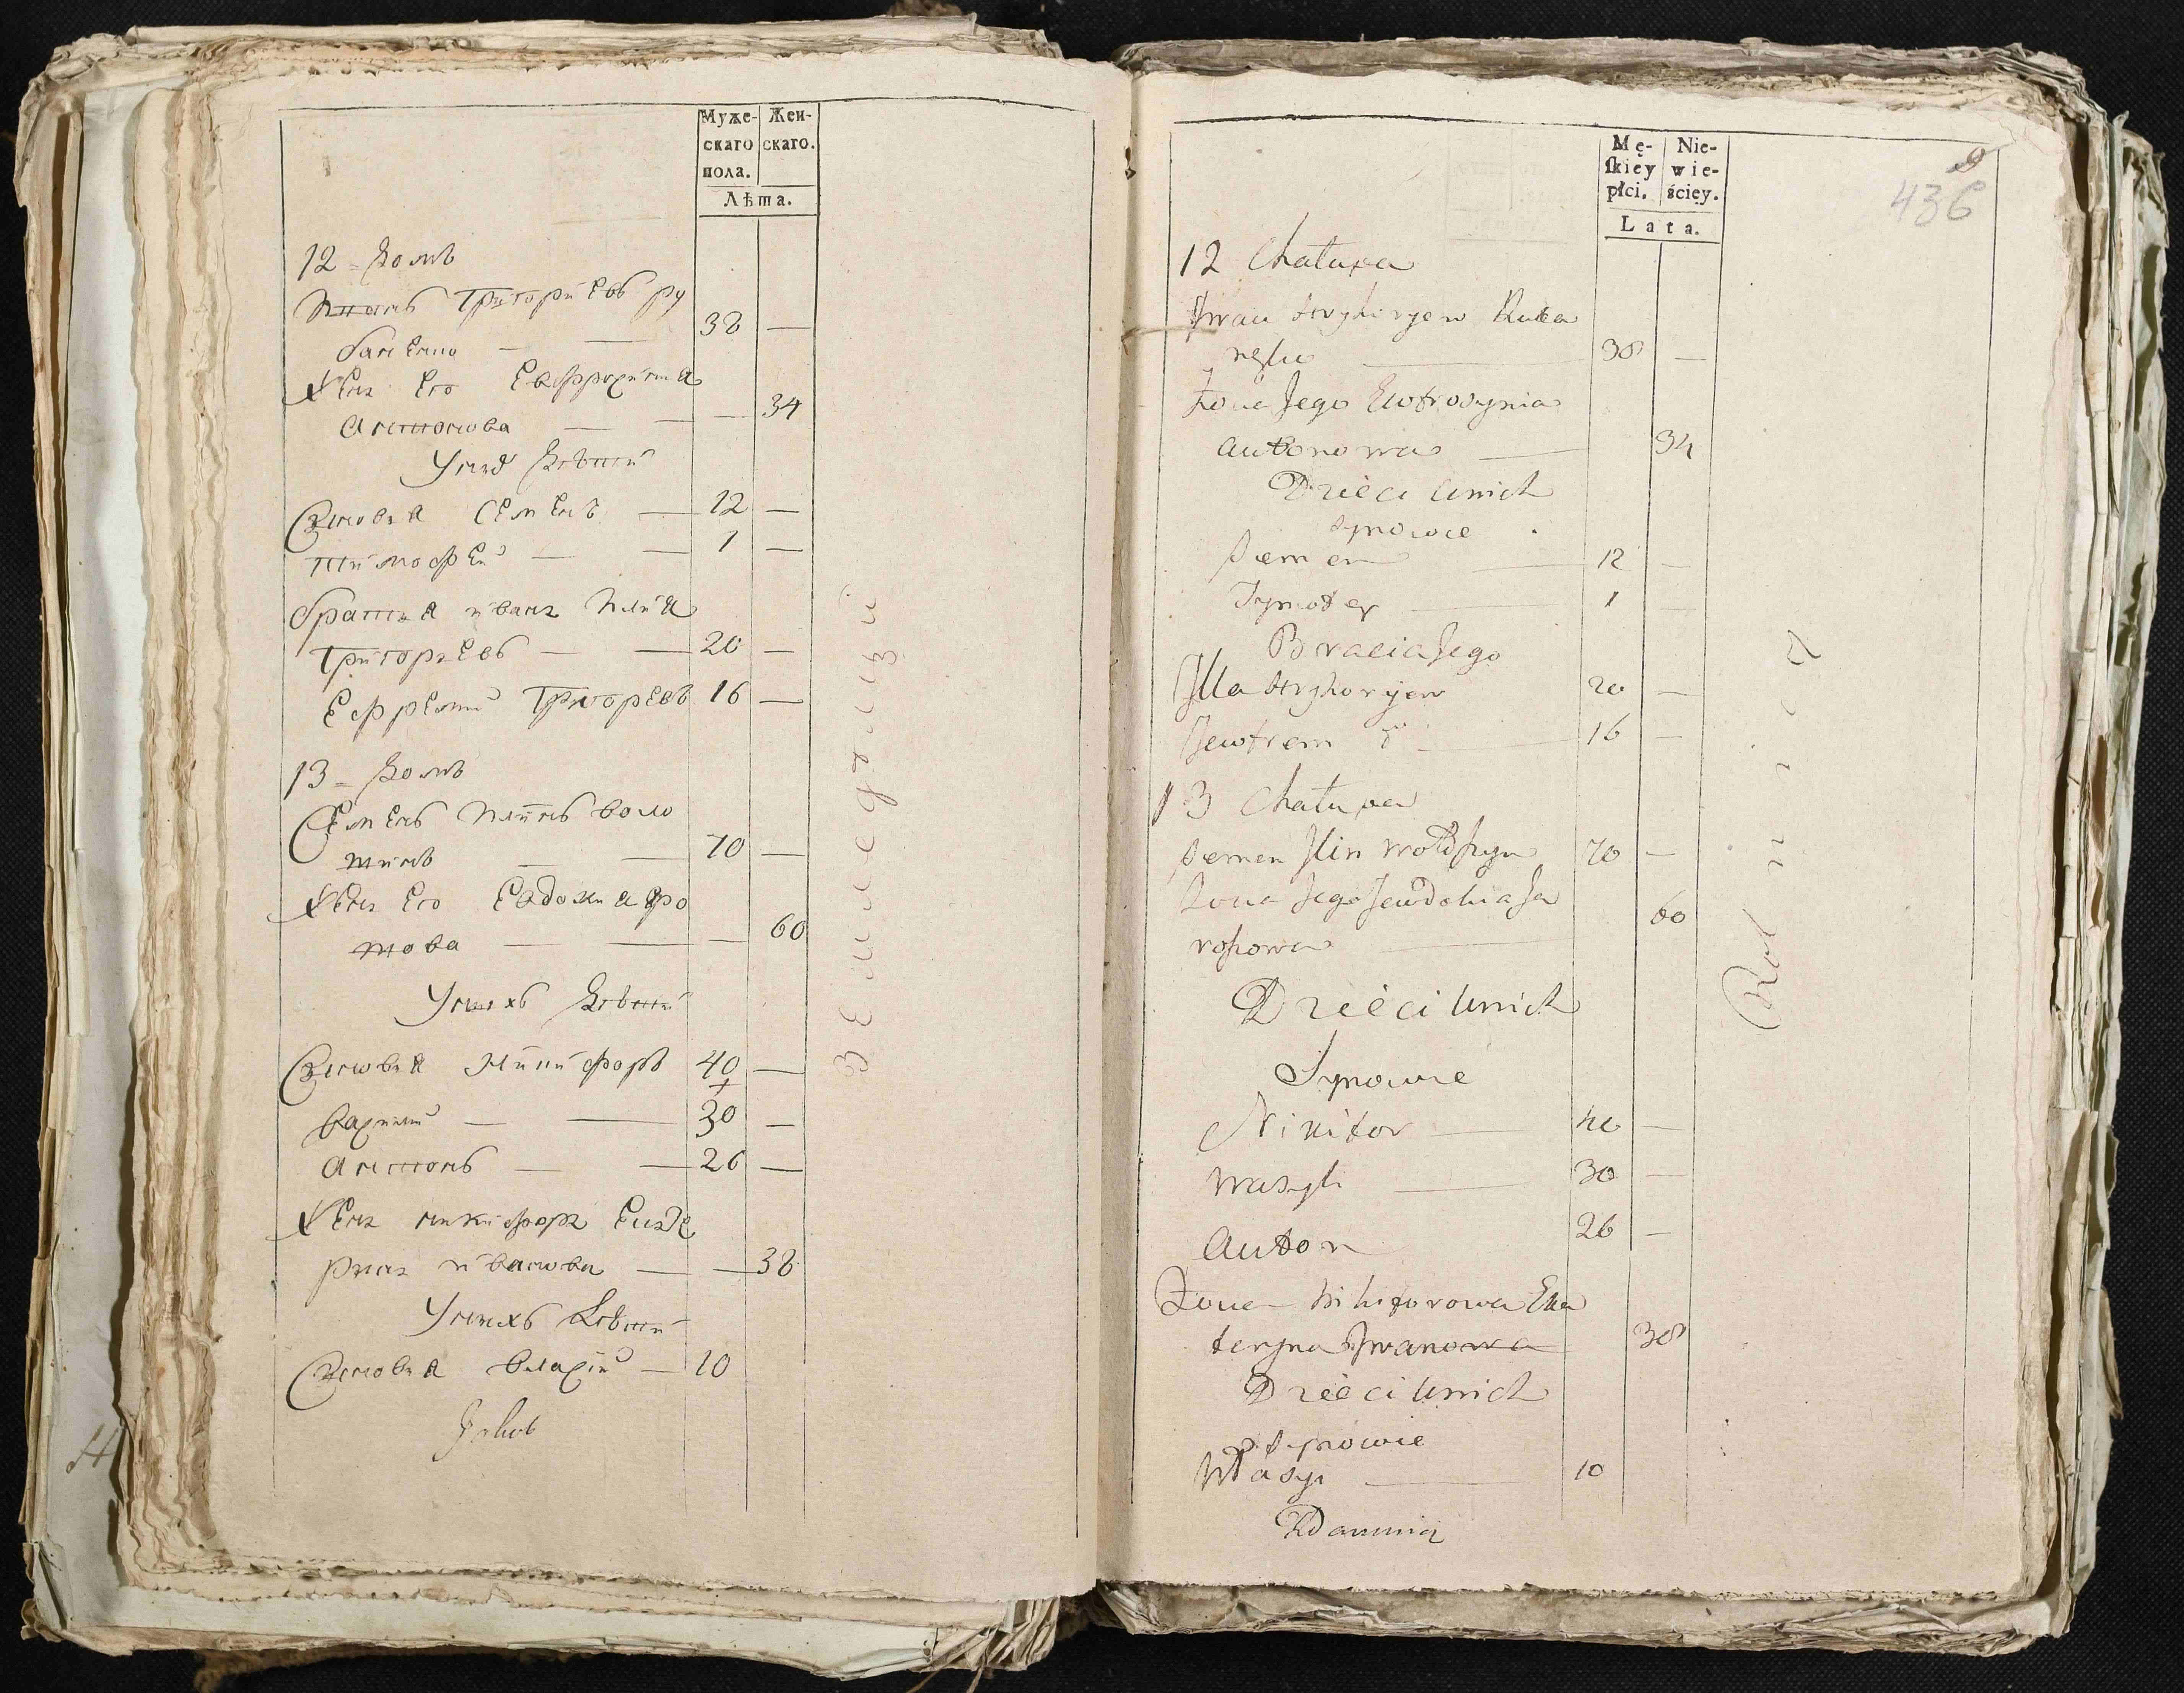 Муже-
скаго
пола.
Жен-
скаго.
Лѣта.
12 = Домъ
Иванъ Григориевъ ру
38 —
Жена Его Евфросиния
Антонова — — — 34
У нихъ Дѣти
Сыновья Семенъ — 12 —
Тимофей — — 1 —
братья ивана Илия
Григорьевъ — — 20 —
Ефремъ Григоревъ 16 —
13 = Домъ
Семенъ Илинъ воло
шинъ — — 70 —
Жена Его Евдокия
— — — 60
У нихъ Дѣти
Сыновья Никифоръ 40 —
Василий — — 30 —
Антонъ — — 26 —
Жена никифора Екате
рина иванова — — 38
У нихъ Дѣти
Сыновья власий — 10
Jakub
Земледѣлцы
Mę-
skiey
płci.
Nie-
wie-
ściey.
Lata.
9
436
12 Chałupa
Jwan Hryhoryew
38 —
Żona Jego Ewfrosynia
Antonowa — 34
Dzieci unich
Synowie
Semen — 12 —
Tymofey — 1 —
Bracia Jego
Jlla Hryhoryew 20 —
Jewfrem — 16 —
13 Chałupa
Semen Jlin Wołoszyn 70 —
Żona Jego Jewdokia
60
Dzieci unich
Synowie
Nikifor — 40 —
Wasyli — 30 —
Anton 26 —
Żona Nikiforowa Eka
teryna Jwanowa 38
Dzieci unich
Synowie
Własy — 10
Rolnicy